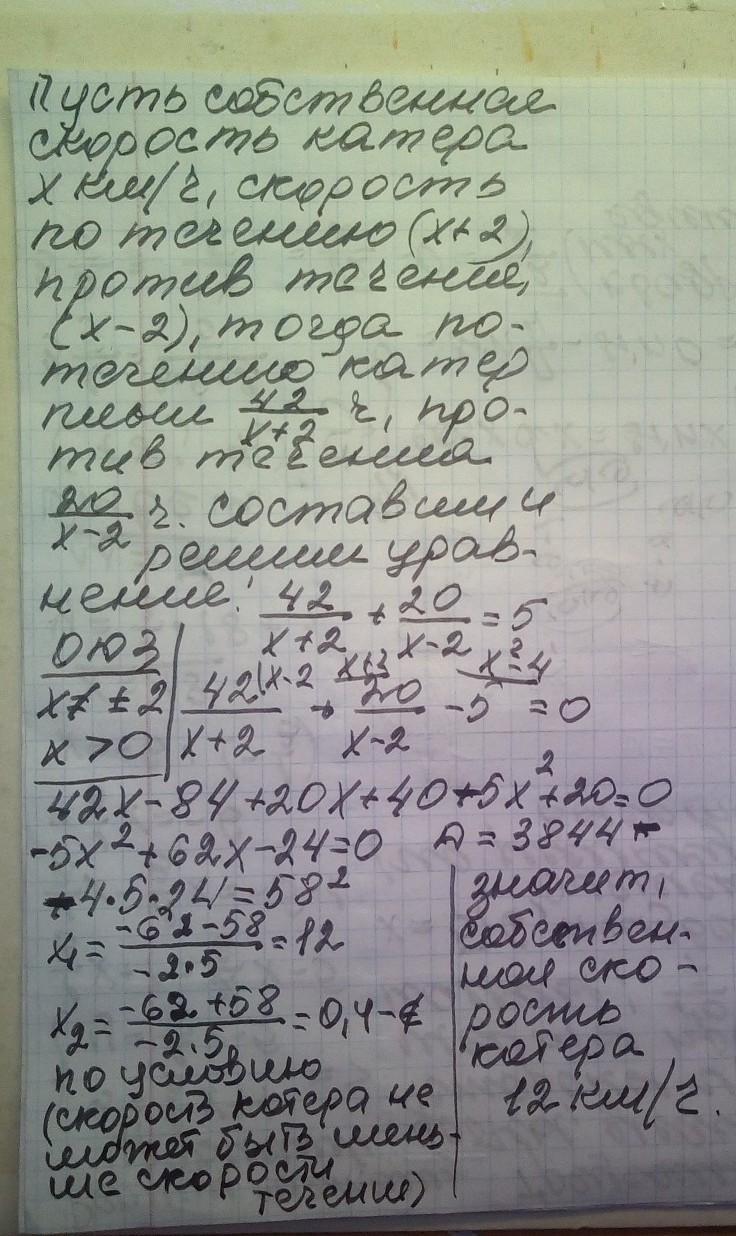 Пусть собственная
скорость катера
х км/ч, скорость
по течению (х+2),
против течения,
(х-2), тогда по-
течению катер
плыл 42/(х+2) ч, про-
тив течения
20/(х-2) ч. составим и
решим урав-
нение: 42/(х+2) + 20/(х-2) = 5
ОДЗ
х≠±2
х>0
42/(х+2) |х-2 + 20/(х-2) |х+2 - 5 |х²-4 = 0
42х-84+20х+40-5х²+20=0
-5х²+62х-24=0 Д=3844-
-4·5·24=58²
х₁= (-62-58)/(-2·5) =12
х₂= (-62+58)/(-2·5) =0,4-∉
по условию
(скорость катера не
может быть мень-
ше скорости
течения)
значит,
собствен-
ная ско-
рость
катера
12 км/ч.